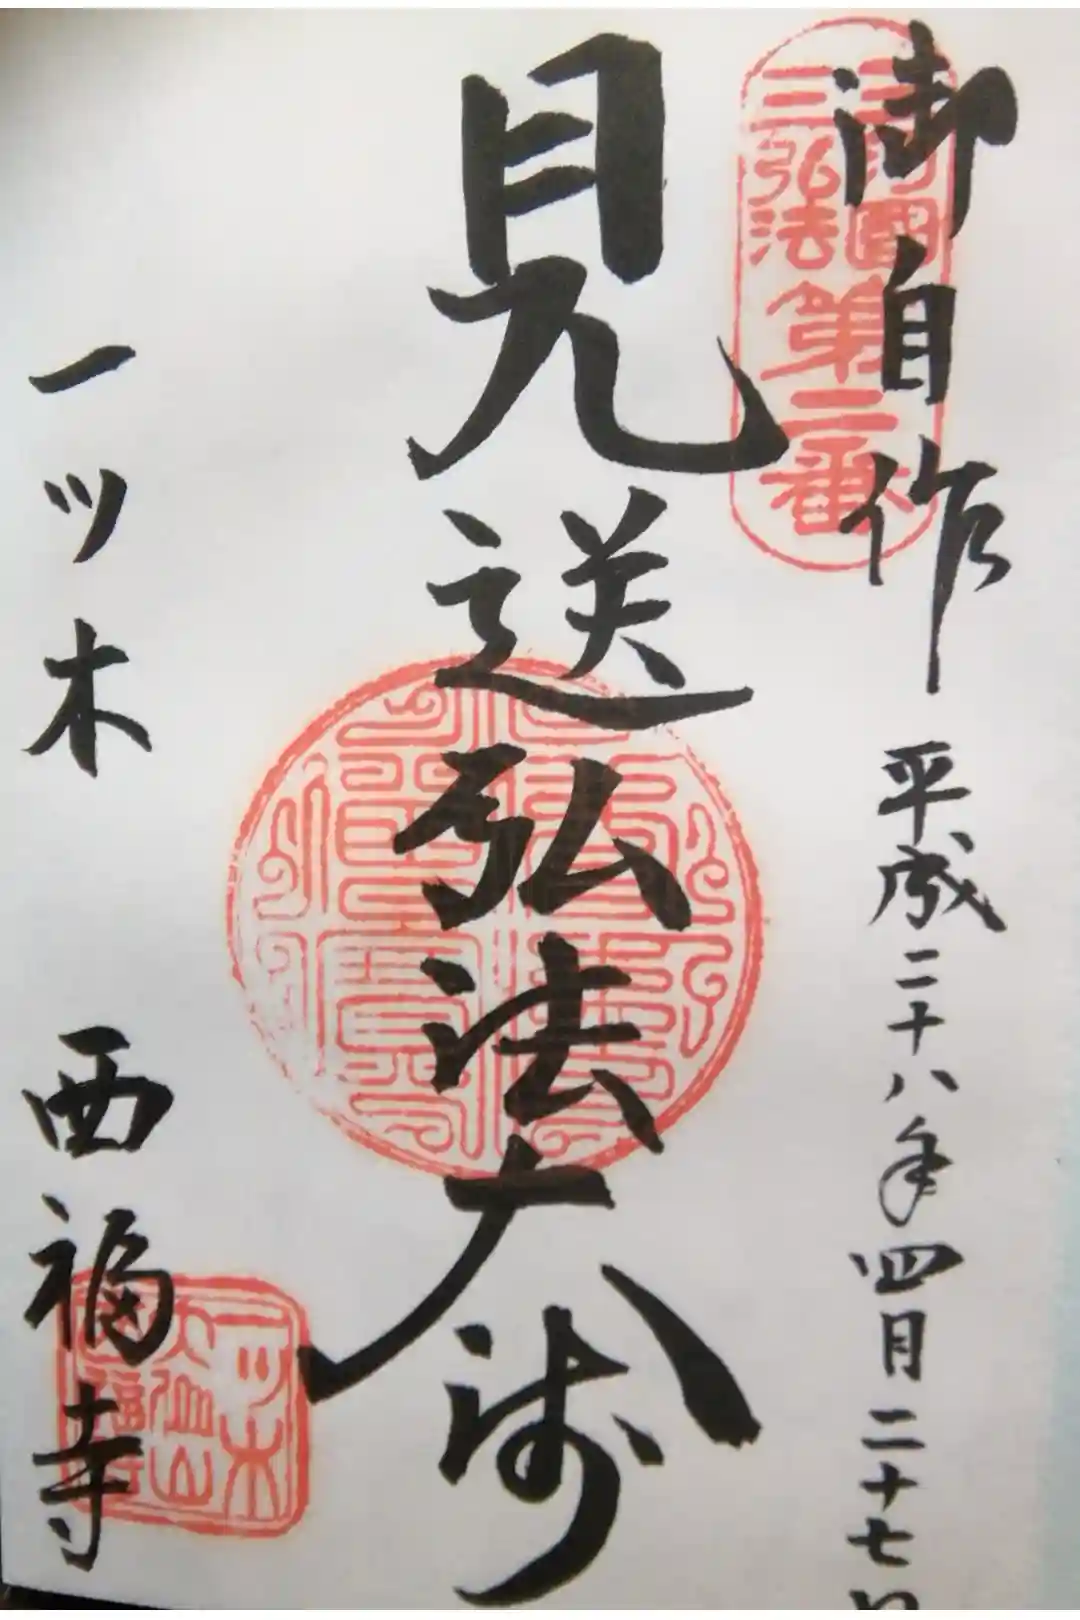 御自作 平成二十八年四月二十七日
三弘法
第二番
見送弘法大師
一ツ木 西福寺
一ツ木